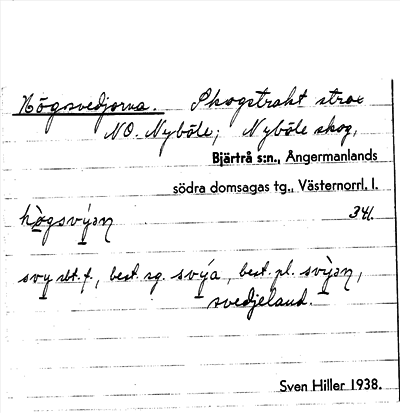 Högsvedjorna. Skogstrakt strax
NO. Nyböle; Nyböle skog,
Bjärtrå s:n., Ångermanlands
södra domsagas tg., Västernorrl. l.
hògsvý̱ən 341.
svy̱ sbt. f., best. sg. svý̱a, best. pl. svỳ̱ən,
svedjeland.
Sven Hiller 1938.